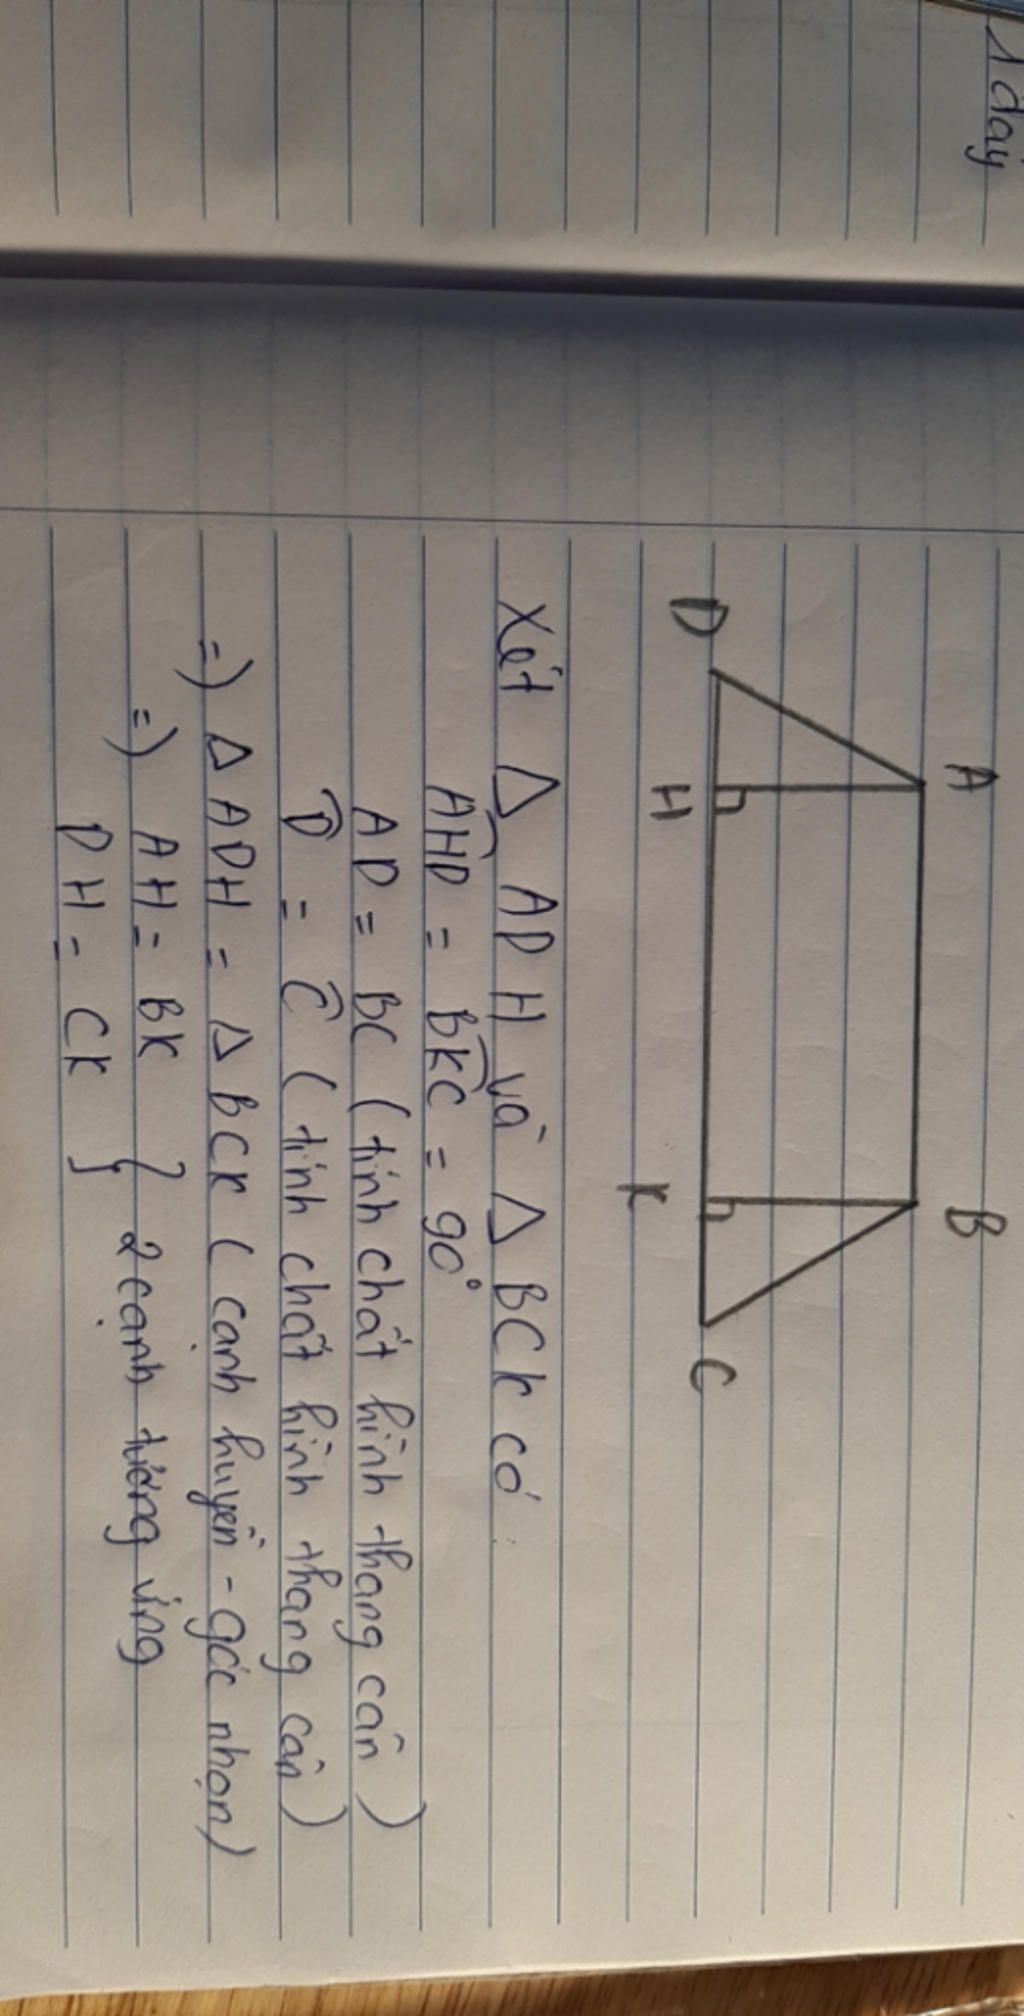 1 day
A B
D H K C
Xét Δ ADH và Δ BCK có
AHD = BKC = 90°
AD = BC (tính chất hình thang cân)
D = C (tính chất hình thang cân)
=) Δ ADH = Δ BCK (cạnh huyền - góc nhọn)
=) AH = BK } 2 cạnh tương ứng
DH = CK }